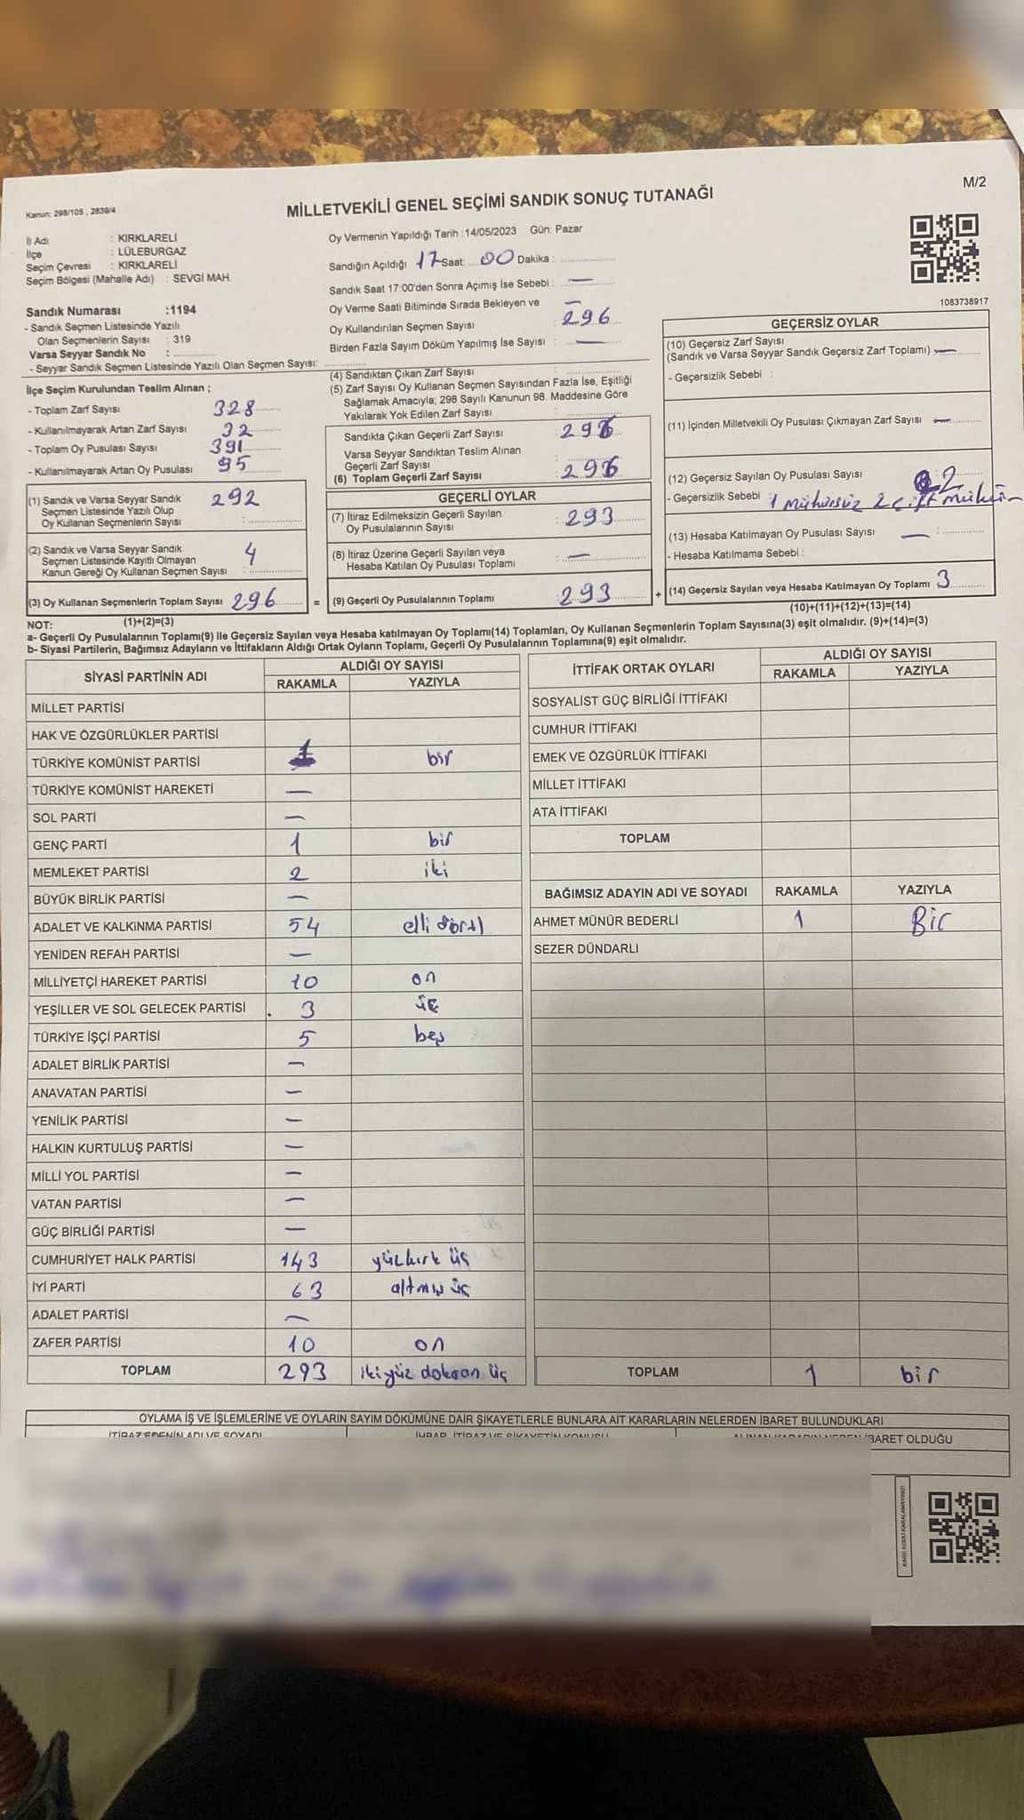 M/2
Kanun: 298/105 , 2839/4
MİLLETVEKİLİ GENEL SEÇİMİ SANDIK SONUÇ TUTANAĞI
İl Adı : KIRKLARELİ
İlçe : LÜLEBURGAZ
Seçim Çevresi : KIRKLARELİ
Seçim Bölgesi (Mahalle Adı) : SEVGİ MAH.
Sandık Numarası :1194
- Sandık Seçmen Listesinde Yazılı
Olan Seçmenlerin Sayısı : 319
Varsa Seyyar Sandık No :
- Seyyar Sandık Seçmen Listesinde Yazılı Olan Seçmen Sayısı:
İlçe Seçim Kurulundan Teslim Alınan ;
- Toplam Zarf Sayısı 328
- Kullanılmayarak Artan Zarf Sayısı 32
- Toplam Oy Pusulası Sayısı 391
- Kullanılmayarak Artan Oy Pusulası 95
(1) Sandık ve Varsa Seyyar Sandık
Seçmen Listesinde Yazılı Olup
Oy Kullanan Seçmenlerin Sayısı : 292
(2) Sandık ve Varsa Seyyar Sandık
Seçmen Listesinde Kayıtlı Olmayan
Kanun Gereği Oy Kullanan Seçmen Sayısı : 4
(3) Oy Kullanan Seçmenlerin Toplam Sayısı 296
(1)+(2)=(3)
Oy Vermenin Yapıldığı Tarih :14/05/2023 Gün: Pazar
Sandığın Açıldığı 17 Saat: 00 Dakika :
Sandık Saat 17:00'den Sonra Açımış İse Sebebi : —
Oy Verme Saati Bitiminde Sırada Bekleyen ve —
Oy Kullandırılan Seçmen Sayısı : 296
Birden Fazla Sayım Döküm Yapılmış İse Sayısı : —
(4) Sandıktan Çıkan Zarf Sayısı
(5) Zarf Sayısı Oy Kullanan Seçmen Sayısından Fazla İse, Eşitliği
Sağlamak Amacıyla; 298 Sayılı Kanunun 98. Maddesine Göre
Yakılarak Yok Edilen Zarf Sayısı :
Sandıkta Çıkan Geçerli Zarf Sayısı : 296
Varsa Seyyar Sandıktan Teslim Alınan
Geçerli Zarf Sayısı
(6) Toplam Geçerli Zarf Sayısı : 296
GEÇERLİ OYLAR
(7) İtiraz Edilmeksizin Geçerli Sayılan
Oy Pusulalarının Sayısı : 293
(8) İtiraz Üzerine Geçerli Sayılan veya
Hesaba Katılan Oy Pusulası Toplamı : —
= (9) Geçerli Oy Pusulalarının Toplamı : 293
1083738917
GEÇERSİZ OYLAR
(10) Geçersiz Zarf Sayısı
(Sandık ve Varsa Seyyar Sandık Geçersiz Zarf Toplamı) —
- Geçersizlik Sebebi :
(11) İçinden Milletvekili Oy Pusulası Çıkmayan Zarf Sayısı —
(12) Geçersiz Sayılan Oy Pusulası Sayısı 2
- Geçersizlik Sebebi : 1 mühürsüz 2 çift mühür
(13) Hesaba Katılmayan Oy Pusulası Sayısı : —
- Hesaba Katılmama Sebebi :
+ (14) Geçersiz Sayılan veya Hesaba Katılmayan Oy Toplamı 3
(10)+(11)+(12)+(13)=(14)
NOT:
a- Geçerli Oy Pusulalarının Toplamı(9) ile Geçersiz Sayılan veya Hesaba katılmayan Oy Toplamı(14) Toplamları, Oy Kullanan Seçmenlerin Toplam Sayısına(3) eşit olmalıdır. (9)+(14)=(3)
b- Siyasi Partilerin, Bağımsız Adayların ve İttifakların Aldığı Ortak Oyların Toplamı, Geçerli Oy Pusulalarının Toplamına(9) eşit olmalıdır.
SİYASİ PARTİNİN ADI ALDIĞI OY SAYISI
RAKAMLA YAZIYLA
MİLLET PARTİSİ
HAK VE ÖZGÜRLÜKLER PARTİSİ
TÜRKİYE KOMÜNİST PARTİSİ 1 bir
TÜRKİYE KOMÜNİST HAREKETİ —
SOL PARTİ —
GENÇ PARTİ 1 bir
MEMLEKET PARTİSİ 2 iki
BÜYÜK BİRLİK PARTİSİ —
ADALET VE KALKINMA PARTİSİ 54 elli dört
YENİDEN REFAH PARTİSİ —
MİLLİYETÇİ HAREKET PARTİSİ 10 on
YEŞİLLER VE SOL GELECEK PARTİSİ 3 üç
TÜRKİYE İŞÇİ PARTİSİ 5 beş
ADALET BİRLİK PARTİSİ —
ANAVATAN PARTİSİ —
YENİLİK PARTİSİ —
HALKIN KURTULUŞ PARTİSİ —
MİLLİ YOL PARTİSİ —
VATAN PARTİSİ —
GÜÇ BİRLİĞİ PARTİSİ —
CUMHURİYET HALK PARTİSİ 143 yüzkırk üç
İYİ PARTİ 63 altmış üç
ADALET PARTİSİ —
ZAFER PARTİSİ 10 on
TOPLAM 293 ikiyüz doksan üç
İTTİFAK ORTAK OYLARI ALDIĞI OY SAYISI
RAKAMLA YAZIYLA
SOSYALİST GÜÇ BİRLİĞİ İTTİFAKI
CUMHUR İTTİFAKI
EMEK VE ÖZGÜRLÜK İTTİFAKI
MİLLET İTTİFAKI
ATA İTTİFAKI
TOPLAM
BAĞIMSIZ ADAYIN ADI VE SOYADI RAKAMLA YAZIYLA
AHMET MÜNÜR BEDERLİ 1 Bir
SEZER DÜNDARLI
TOPLAM 1 bir
OYLAMA İŞ VE İŞLEMLERİNE VE OYLARIN SAYIM DÖKÜMÜNE DAİR ŞİKAYETLERLE BUNLARA AİT KARARLARIN NELERDEN İBARET BULUNDUKLARI
İTİRAZ EDENİN ADI VE SOYADI İHBAR, İTİRAZ VE ŞİKAYETİN KONUSU ALINAN KARARIN NEDEN İBARET OLDUĞU